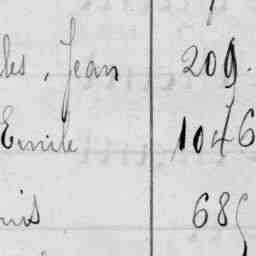 les, Jean 209.
Emile 1046
nis 689